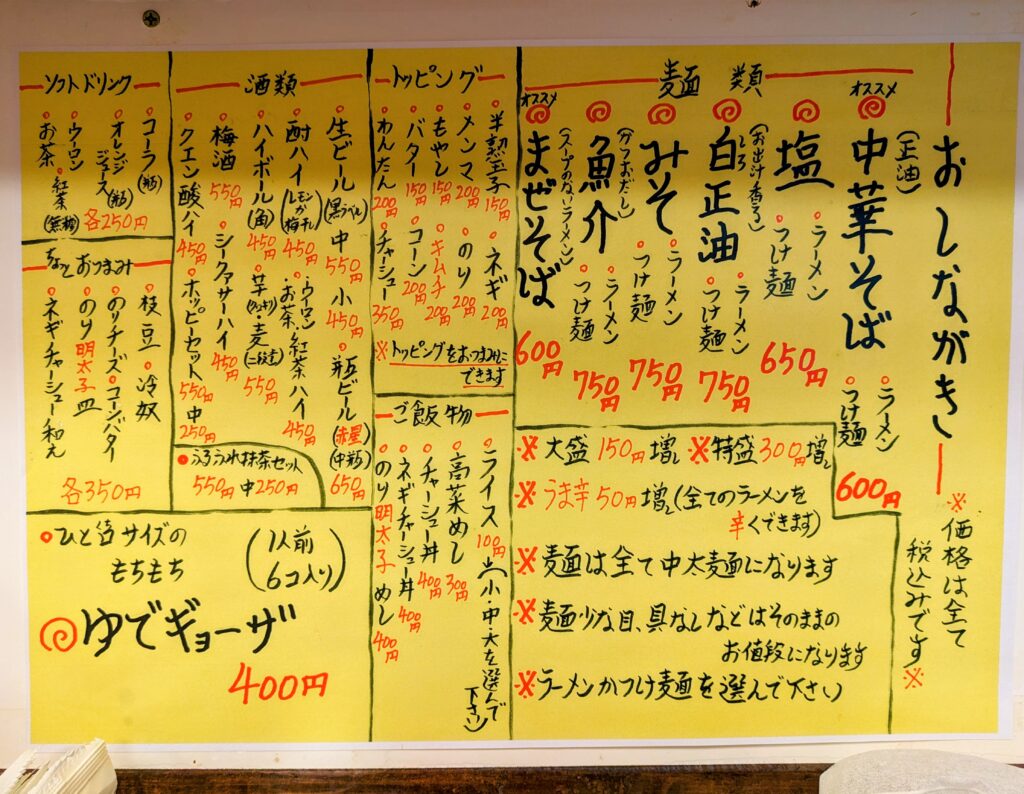 おしながき
※価格は全て
税込みです※
麺類
オススメ
中華そば
(正油)
・ラーメン
・つけ麺
600円
塩
・ラーメン
・つけ麺
650円
白正油
しろ
(お出汁香る)
・ラーメン
・つけ麺
750円
みそ
・ラーメン
・つけ麺
750円
魚介
(かつおだし)
・ラーメン
・つけ麺
750円
オススメ
まぜそば
(スープのないラーメン)
600円
※大盛 150円増し ※特盛 300円増し
※うま辛 50円増し(全てのラーメンを
辛くできます)
※麺は全て中太麺になります
※麺少な目、具なしなどはそのままの
お値段になります
※ラーメンかつけ麺を選んで下さい
トッピング
・半熟玉子 150円
・ネギ 200円
・メンマ 200円
・のり 200円
・もやし 150円
・キムチ 200円
・バター 150円
・コーン 200円
・わんたん 200円
・チャーシュー 350円
※トッピングをおつまみに
できます
ご飯物
・ライス 100円(小・中・大を選んで
下さい)
・高菜めし 300円
・チャーシュー丼 400円
・ネギチャーシュー丼 400円
・のり明太子めし 400円
酒類
・生ビール(黒ラベル) 中 550円 小 450円
・瓶ビール(赤星)(中瓶) 650円
・酎ハイ(レモンか梅干し) 450円
・ウーロン・お茶・紅茶ハイ 450円
・ハイボール(角) 450円
・芋(スッキリ)・麦(二段壱) 550円
・梅酒 550円
・シークァサーハイ 450円
・クエン酸ハイ 450円
・ホッピーセット 550円 中 250円
・うるうれ抹茶セット
550円 中 250円
ソフトドリンク
・コーラ(瓶)
・オレンジジュース(瓶)
・ウーロン
・お茶・紅茶(無糖)
各250円
ちょっとおつまみ
・枝豆・冷奴
・のりチーズ・コーンバター
・のり明太子皿
・ネギチャーシュー和え
各350円
・ひと口サイズの
もちもち
(1人前
6コ入り)
ゆでギョーザ
400円